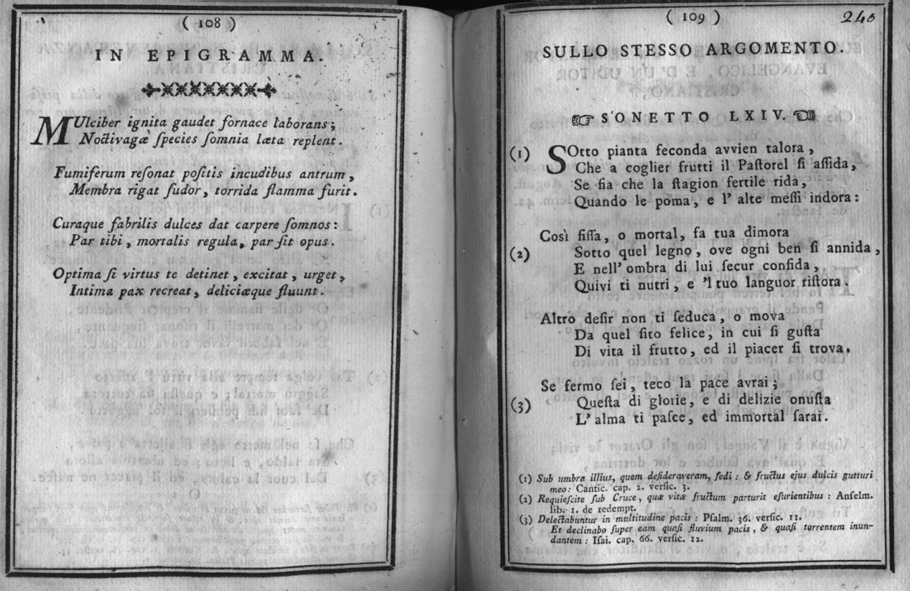 ( 108 )
IN EPIGRAMMA.
MUlciber ignita gaudet fornace laborans;
Noctivagæ species somnia læta replent.
Fumiferum resonat positis incudibus antrum,
Membra rigat sudor, torrida flamma furit.
Curaque fabrilis dulces dat carpere somnos:
Par tibi, mortalis regula, par sit opus.
Optima si virtus te detinet, excitat, urget,
Intima pax recreat, deliciæque fluunt.
( 109 )
240
SULLO STESSO ARGOMENTO.
SONETTO LXIV.
(1) SOtto pianta feconda avvien talora,
Che a coglier frutti il Pastorel si assida,
Se fia che la stagion fertile rida,
Quando le poma, e l' alte messi indora:
Così fissa, o mortal, fa tua dimora
(2) Sotto quel legno, ove ogni ben si annida,
E nell' ombra di lui secur confida,
Quivi ti nutri, e 'l tuo languor ristora.
Altro desir non ti seduca, o mova
Da quel sito felice, in cui si gusta
Di vita il frutto, ed il piacer si trova.
Se fermo sei, teco la pace avrai;
(3) Questa di glorie, e di delizie onusta
L' alma ti pasce, ed immortal sarai.
(1) Sub umbra illius, quem desideraveram, sedi: & fructus ejus dulcis gutturi
meo: Cantic. cap. 2. versic. 3.
(2) Requiescite sub Cruce, quæ vitæ fructum parturit esurientibus: Anselm.
lib. 1. de redempt.
(3) Delectabuntur in multitudine pacis: Psalm. 36. versic. 11.
Et declinabo super eam quasi fluvium pacis, & quasi torrentem inun-
dantem: Isai. cap. 66. versic. 12.